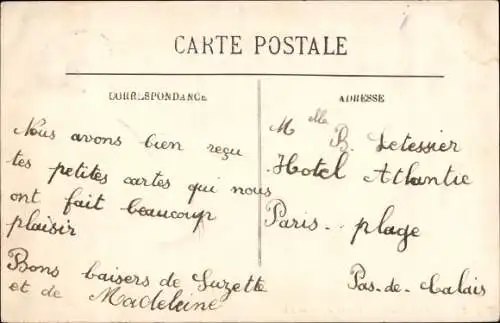 CARTE POSTALE
CORRESPONDANCE
Nous avons bien reçu
tes petites cartes qui nous
ont fait beaucoup
plaisir
Bons baisers de Suzette
et de Madeleine
ADRESSE
Mlle B. Letessier
Hotel Atlantic
Paris-plage
Pas-de-Calais